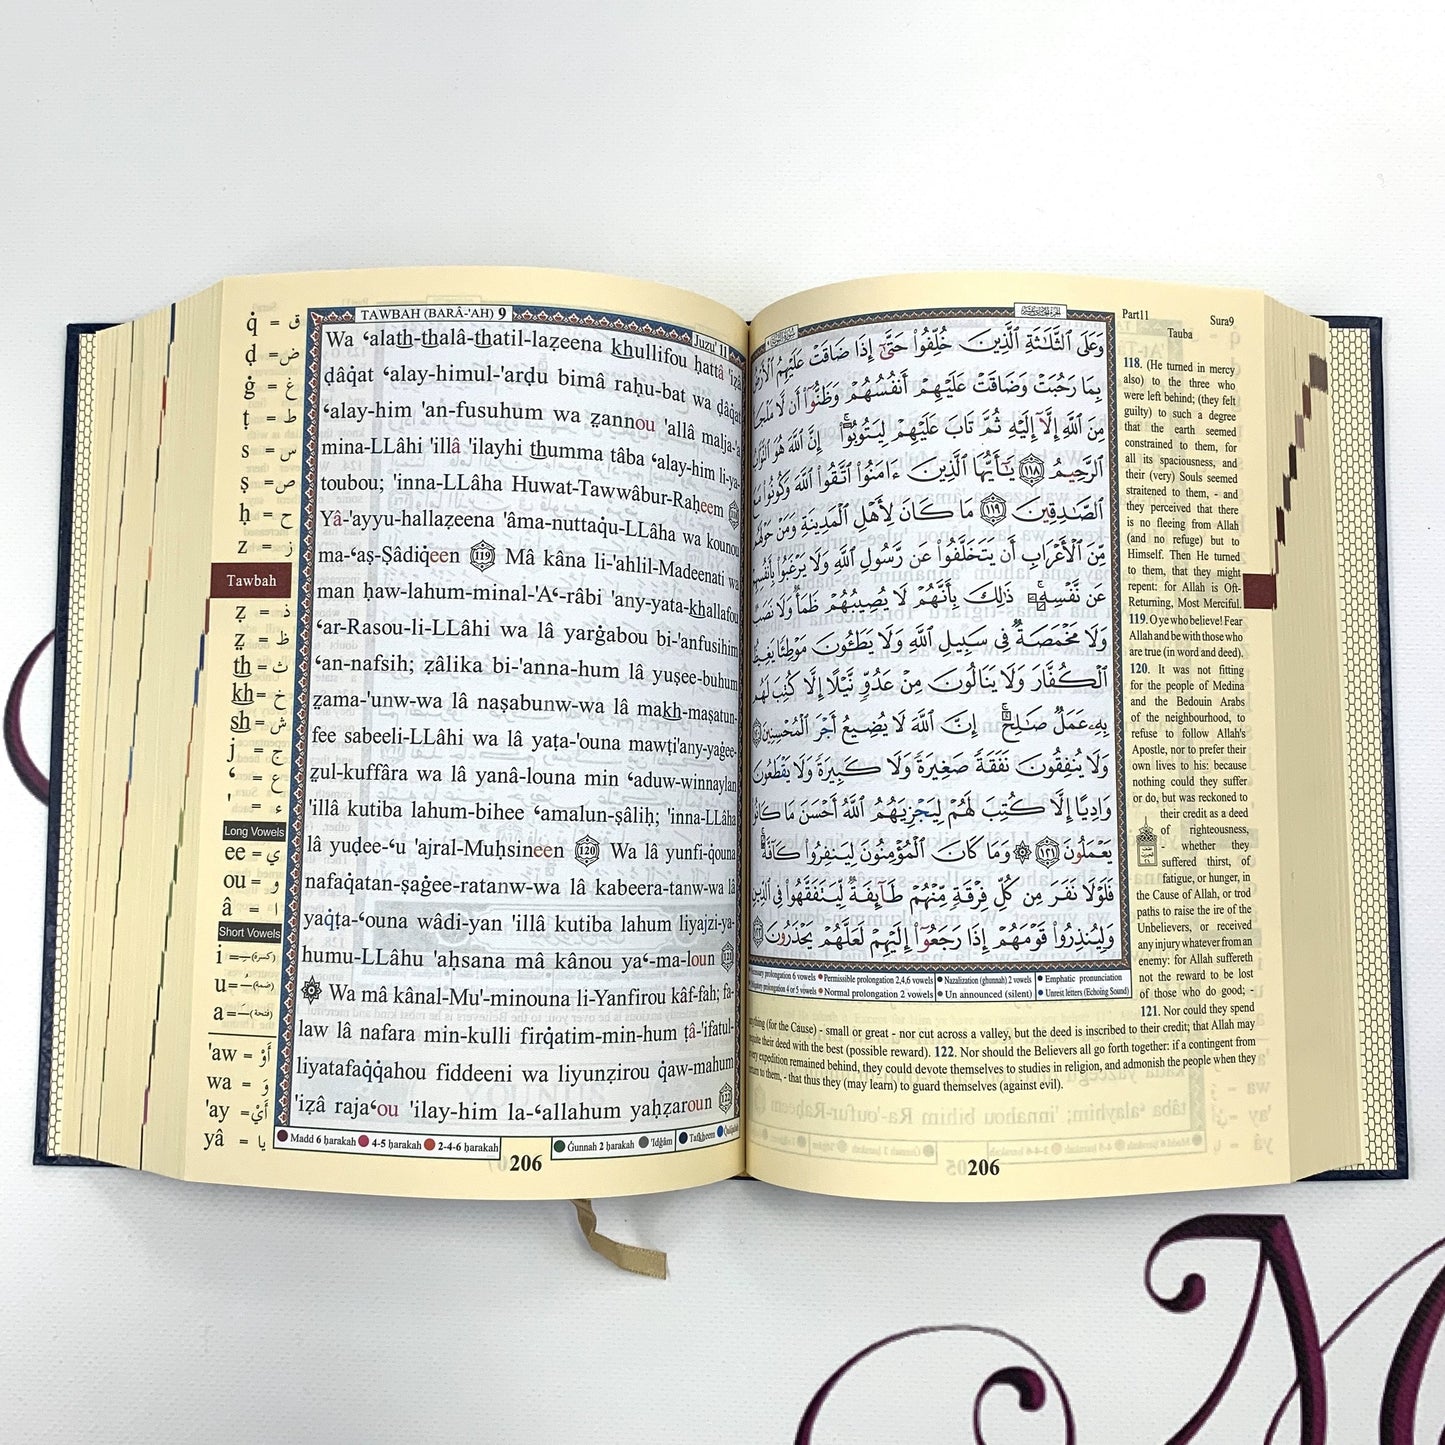 TAWBAH (BARÂ-'AH) 9
Juzu' 11
q̇ = ق
ḍ = ض
ġ = غ
ṭ = ط
s = س
ṣ = ص
ḥ = ح
z = ز
Tawbah
ẓ = ذ
ẓ = ظ
th = ث
kh = خ
sh = ش
j = ج
‘ = ع
' = ء
Long Vowels
ee = ي
ou = و
â = ا
Short Vowels
i = (كسرة)
u = (ضمة)
a = (فتحة)
'aw = أَوْ
wa = وَ
'ay = أَيْ
yâ = يا
Wa ‘alath-thalâ-thatil-laẓeena khullifou ḥattâ 'iẓâ
ḍâq̇at ‘alay-himul-'arḍu bimâ raḥu-bat wa ḍâq̇at
‘alay-him 'an-fusuhum wa ẓannou 'allâ malja-'a
mina-LLâhi 'illâ 'ilayhi thumma tâba ‘alay-him li-ya-
toubou; 'inna-LLâha Huwat-Tawwâbur-Raḥeem 118
Yâ-'ayyu-hallaẓeena 'âma-nuttaq̇u-LLâha wa kounou
ma-‘aṣ-Ṣâdiq̇een 119 Mâ kâna li-'ahlil-Madeenati wa
man ḥaw-lahum-minal-'A‘-râbi 'any-yata-khallafou
‘ar-Rasou-li-LLâhi wa lâ yarġabou bi-'anfusihim
‘an-nafsih; ẓâlika bi-'anna-hum lâ yuṣee-buhum
ẓama-'unw-wa lâ naṣabunw-wa lâ makh-maṣatun-
fee sabeeli-LLâhi wa lâ yaṭa-'ouna mawṭi'any-yaġee-
ẓul-kuffâra wa lâ yanâ-louna min ‘aduw-winnaylan
'illâ kutiba lahum-bihee ‘amalun-ṣâliḥ; 'inna-LLâha
lâ yuḍee-‘u 'ajral-Muḥsineen 120 Wa lâ yunfi-q̇ouna
nafaq̇atan-ṣaġee-ratanw-wa lâ kabeera-tanw-wa lâ
yaq̇ṭa-‘ouna wâdi-yan 'illâ kutiba lahum liyajzi-ya-
humu-LLâhu 'aḥsana mâ kânou ya‘-ma-loun 121
Wa mâ kânal-Mu'-minouna li-Yanfirou kâf-fah; fa-
law lâ nafara min-kulli firq̇atim-min-hum ṭâ-'ifatul-
liyatafaq̇q̇ahou fiddeeni wa liyunẓirou q̇aw-mahum
'iẓâ raja‘ou 'ilay-him la-‘allahum yaḥẓaroun 122
Madd 6 ḥarakah 4-5 ḥarakah 2-4-6 ḥarakah Ġunnah 2 ḥarakah 'Idġâm Tafkheem
206
وَعَلَى ٱلثَّلَٰثَةِ ٱلَّذِينَ خُلِّفُوا۟ حَتَّىٰٓ إِذَا ضَاقَتْ عَلَيْهِمُ ٱلْأَرْضُ
بِمَا رَحُبَتْ وَضَاقَتْ عَلَيْهِمْ أَنفُسُهُمْ وَظَنُّوٓا۟ أَن لَّا مَلْجَأَ
مِنَ ٱللَّهِ إِلَّآ إِلَيْهِ ثُمَّ تَابَ عَلَيْهِمْ لِيَتُوبُوٓا۟ ۚ إِنَّ ٱللَّهَ هُوَ ٱلتَّوَّابُ
ٱلرَّحِيمُ ١١٨ يَٰٓأَيُّهَا ٱلَّذِينَ ءَامَنُوا۟ ٱتَّقُوا۟ ٱللَّهَ وَكُونُوا۟ مَعَ
ٱلصَّٰدِقِينَ ١١٩ مَا كَانَ لِأَهْلِ ٱلْمَدِينَةِ وَمَنْ حَوْلَهُم
مِّنَ ٱلْأَعْرَابِ أَن يَتَخَلَّفُوا۟ عَن رَّسُولِ ٱللَّهِ وَلَا يَرْغَبُوا۟ بِأَنفُسِهِمْ
عَن نَّفْسِهِۦ ۚ ذَٰلِكَ بِأَنَّهُمْ لَا يُصِيبُهُمْ ظَمَأٌ وَلَا نَصَبٌ
وَلَا مَخْمَصَةٌ فِى سَبِيلِ ٱللَّهِ وَلَا يَطَـُٔونَ مَوْطِئًا يَغِيظُ
ٱلْكُفَّارَ وَلَا يَنَالُونَ مِنْ عَدُوٍّ نَّيْلًا إِلَّا كُتِبَ لَهُم
بِهِۦ عَمَلٌ صَٰلِحٌ ۚ إِنَّ ٱللَّهَ لَا يُضِيعُ أَجْرَ ٱلْمُحْسِنِينَ ١٢٠
وَلَا يُنفِقُونَ نَفَقَةً صَغِيرَةً وَلَا كَبِيرَةً وَلَا يَقْطَعُونَ
وَادِيًا إِلَّا كُتِبَ لَهُمْ لِيَجْزِيَهُمُ ٱللَّهُ أَحْسَنَ مَا كَانُوا۟
يَعْمَلُونَ ١٢١ ۞ وَمَا كَانَ ٱلْمُؤْمِنُونَ لِيَنفِرُوا۟ كَآفَّةً ۚ
فَلَوْلَا نَفَرَ مِن كُلِّ فِرْقَةٍ مِّنْهُمْ طَآئِفَةٌ لِّيَتَفَقَّهُوا۟ فِى ٱلدِّينِ
وَلِيُنذِرُوا۟ قَوْمَهُمْ إِذَا رَجَعُوٓا۟ إِلَيْهِمْ لَعَلَّهُمْ يَحْذَرُونَ ١٢٢
prolongation 6 vowels Permissible prolongation 2,4,6 vowels Nazalization (ghunnah) 2 vowels Emphatic pronunciation
prolongation 4 or 5 vowels Normal prolongation 2 vowels Un announced (silent) Unrest letters (Echoing Sound)
Part11 Sura9
Tauba
118. (He turned in mercy
also) to the three who
were left behind; (they felt
guilty) to such a degree
that the earth seemed
constrained to them, for
all its spaciousness, and
their (very) Souls seemed
straitened to them, - and
they perceived that there
is no fleeing from Allah
(and no refuge) but to
Himself. Then He turned
to them, that they might
repent: for Allah is Oft-
Returning, Most Merciful.
119. O ye who believe! Fear
Allah and be with those who
are true (in word and deed).
120. It was not fitting
for the people of Medina
and the Bedouin Arabs
of the neighbourhood, to
refuse to follow Allah's
Apostle, nor to prefer their
own lives to his: because
nothing could they suffer
or do, but was reckoned to
their credit as a deed
of righteousness,
- whether they
suffered thirst, of
fatigue, or hunger, in
the Cause of Allah, or trod
paths to raise the ire of the
Unbelievers, or received
any injury whatever from an
enemy: for Allah suffereth
not the reward to be lost
of those who do good; -
121. Nor could they spend
(for the Cause) - small or great - nor cut across a valley, but the deed is inscribed to their credit; that Allah may
their deed with the best (possible reward). 122. Nor should the Believers all go forth together: if a contingent from
expedition remained behind, they could devote themselves to studies in religion, and admonish the people when they
to them, - that thus they (may learn) to guard themselves (against evil).
206